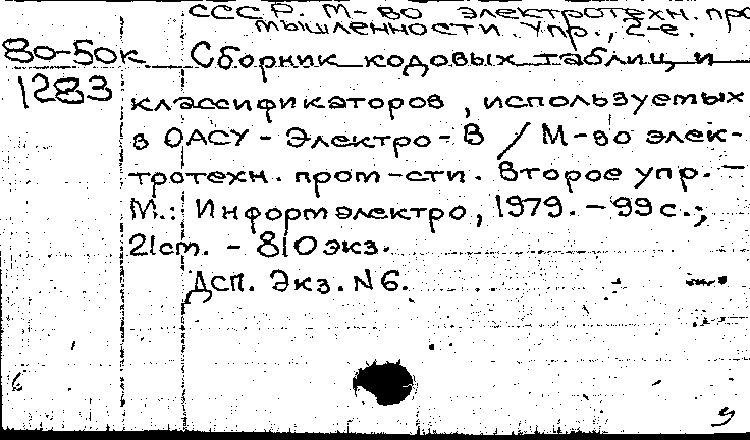 СССР. М-во электротехн. про
мышленности. Упр., 2-е.
80-50к Сборник кодовых таблиц и
1283
классификаторов, используемых
в ОАСУ - Электро - В / М-во элек-
тротехн. пром-сти. Второе упр. -
М.: Информэлектро, 1979. - 99 с.;
21 см. - 810 экз.
Дсп. Экз. N 6.
6